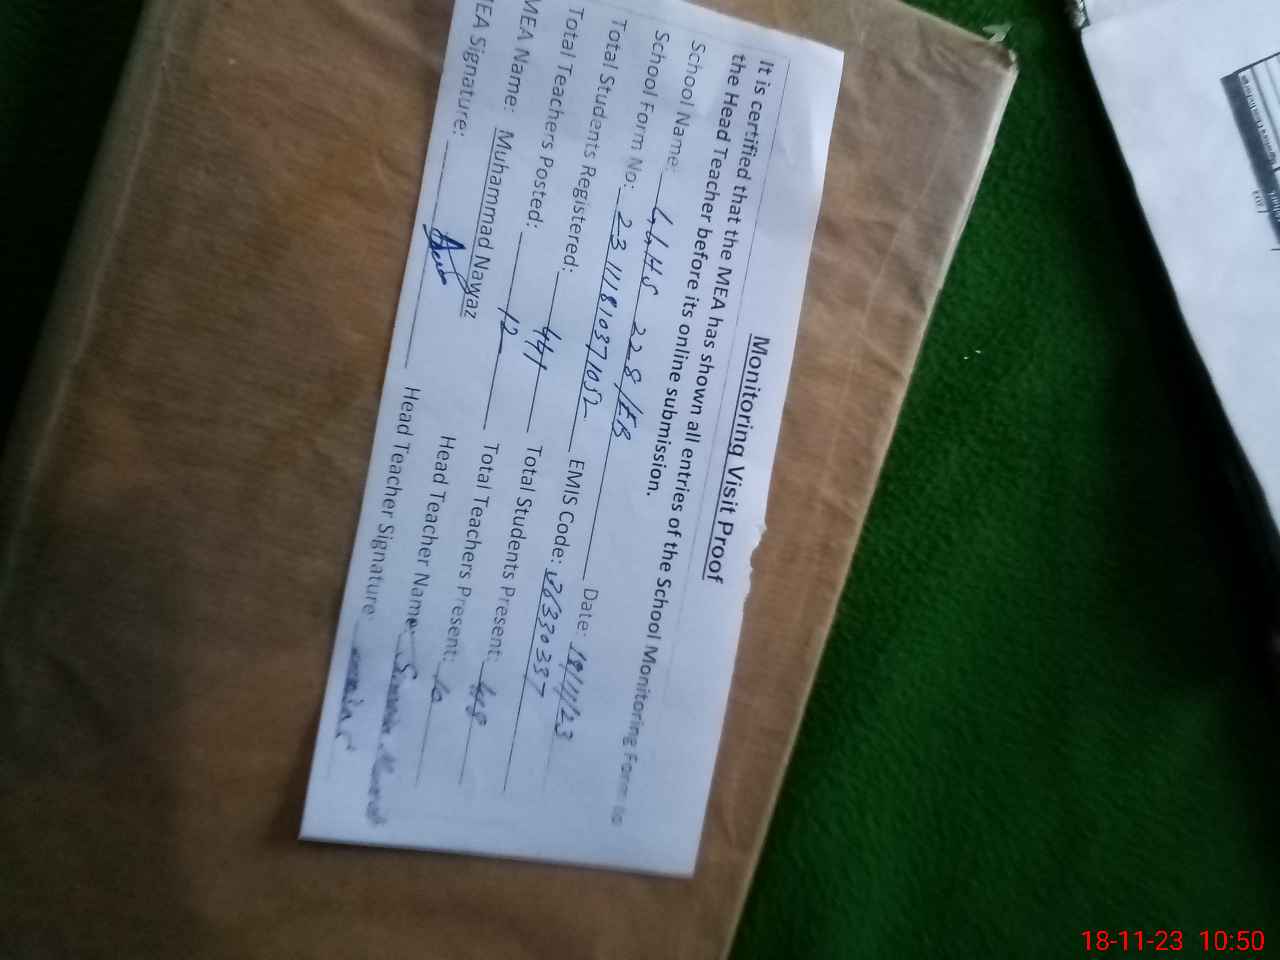 Monitoring Visit Proof
It is certified that the MEA has shown all entries of the School Monitoring Form to
the Head Teacher before its online submission.
School Name: GGHS 228/EB Date: 18/11/23
School Form No: 23111810371052 EMIS Code: 36330337
Total Students Registered: 441 Total Students Present:
Total Teachers Posted: 12 Total Teachers Present: 10
MEA Name: Muhammad Nawaz Head Teacher Name:
MEA Signature: Head Teacher Signature:
18-11-23 10:50